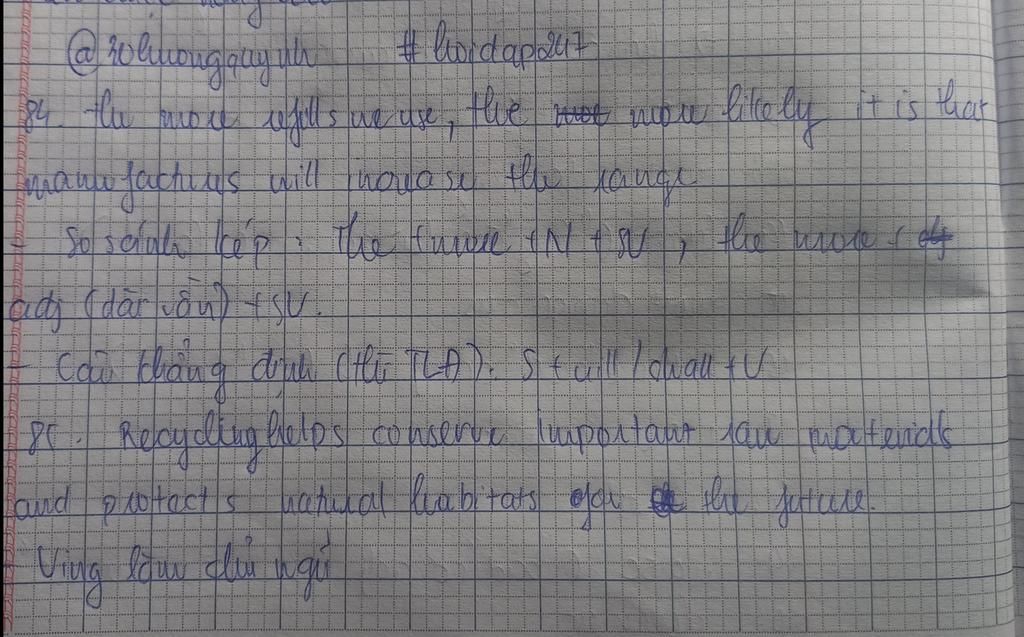 @30luongquynh #hoidap247
84. the more refills we use, the more likely it is that
manufacturers will increase the range
- So sánh kép: The + more + N + SV, the more +
adj (dài vần) + SV.
- Câu khẳng định (thì TLĐ): S + will / shall + V
85. Recycling helps conserve important raw materials
and protects natural habitats for the future.
Ving làm chủ ngữ